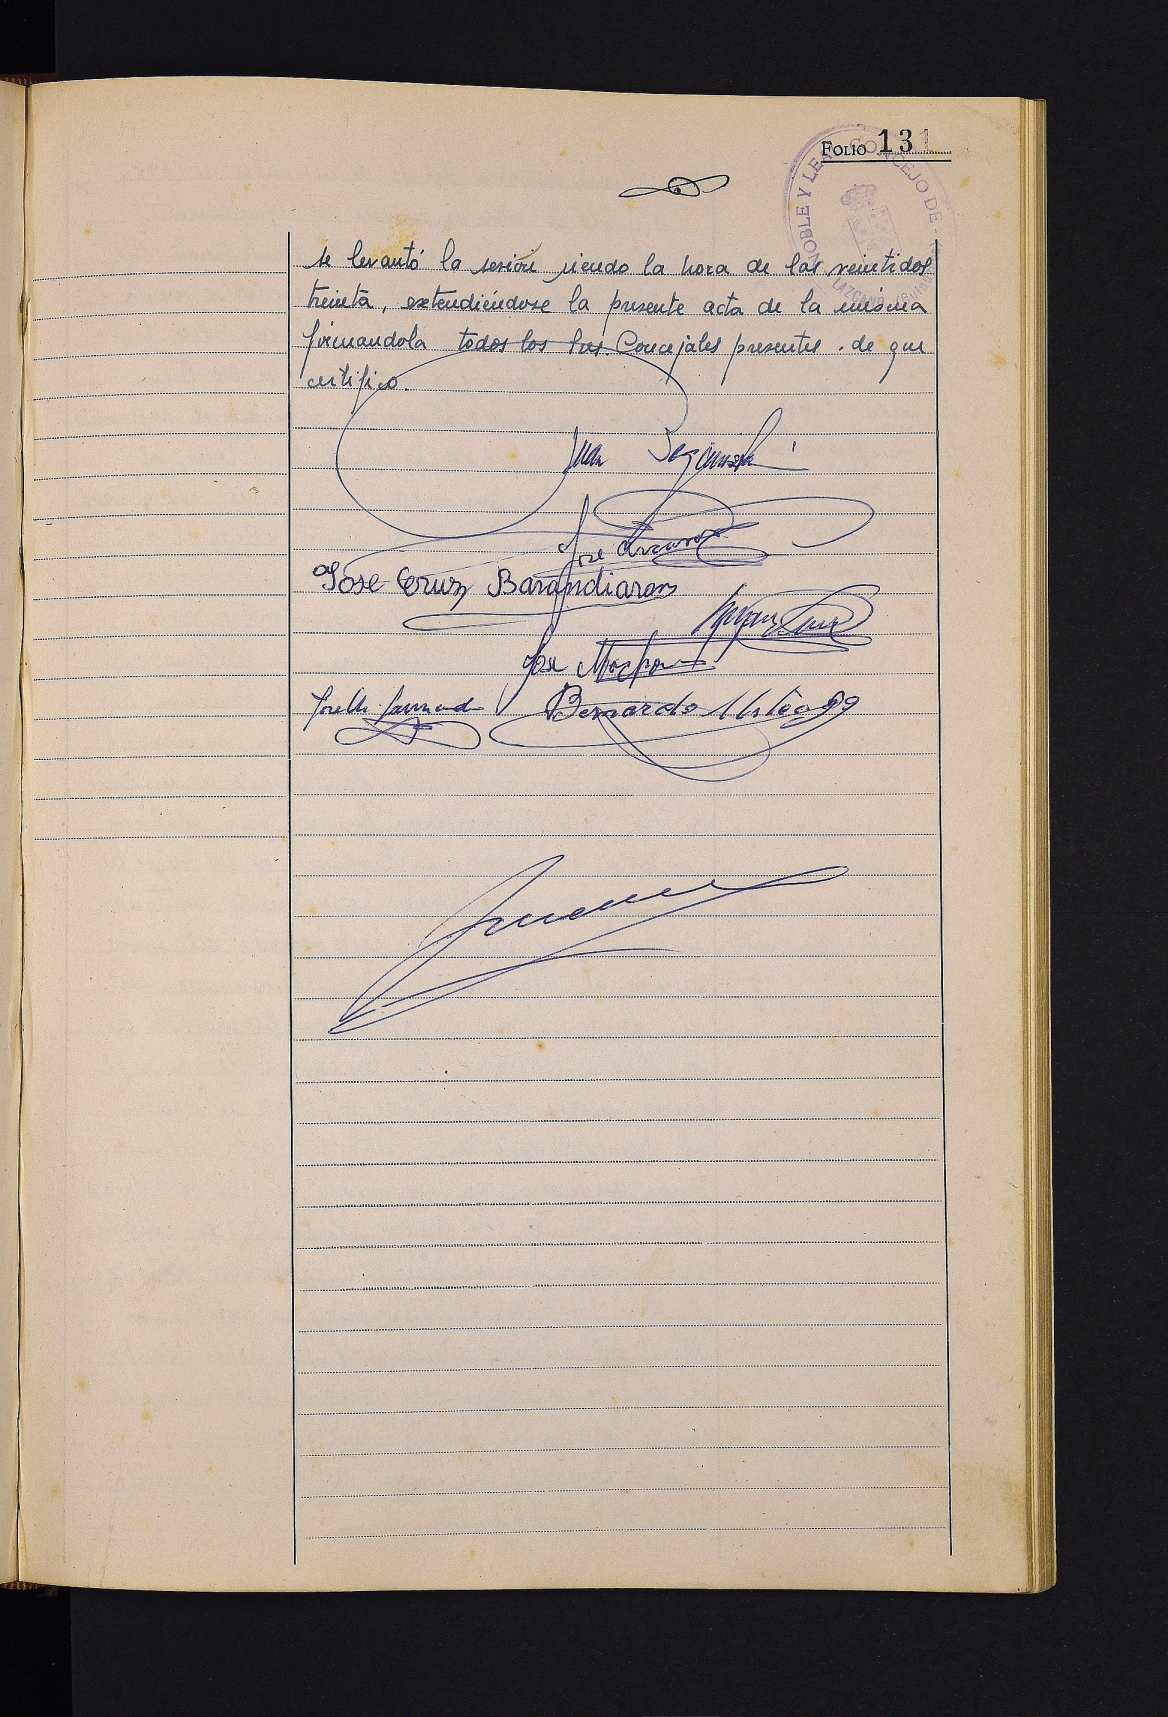 FOLIO 131
NOBLE Y LEAL CONCEJO DE
LAZCANO
se levantó la sesión siendo la hora de las veintidos
treinta, extendiéndose la presente acta de la misma
firmandola todos los Sres. Concejales presentes. de que
certifico.
Juan
Jose
Jose Cruz Barandiaran
Jose
Bernardo Urteaga